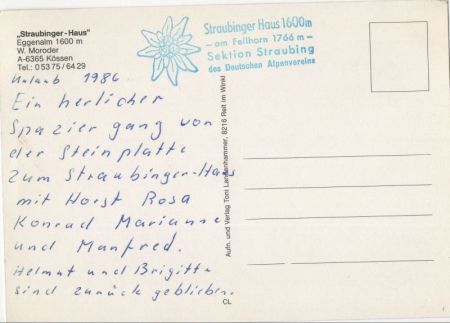 „Straubinger-Haus"
Eggenalm 1600 m
W. Moroder
A-6365 Kössen
Tel.: 0 53 75 / 64 29
Straubinger Haus 1600m
— am Fellhorn 1766 m —
Sektion Straubing
des Deutschen Alpenvereins
Urlaub 1986
Ein herlicher
Spaziergang von
der Steinplatte
zum Straubinger-Haus
mit Horst Rosa
Konrad Marianne
und Manfred.
Helmut und Brigitte
sind zurück geblieben.
Aufn. und Verlag Toni Lankenhammer, 8216 Reit im Winkl
CL